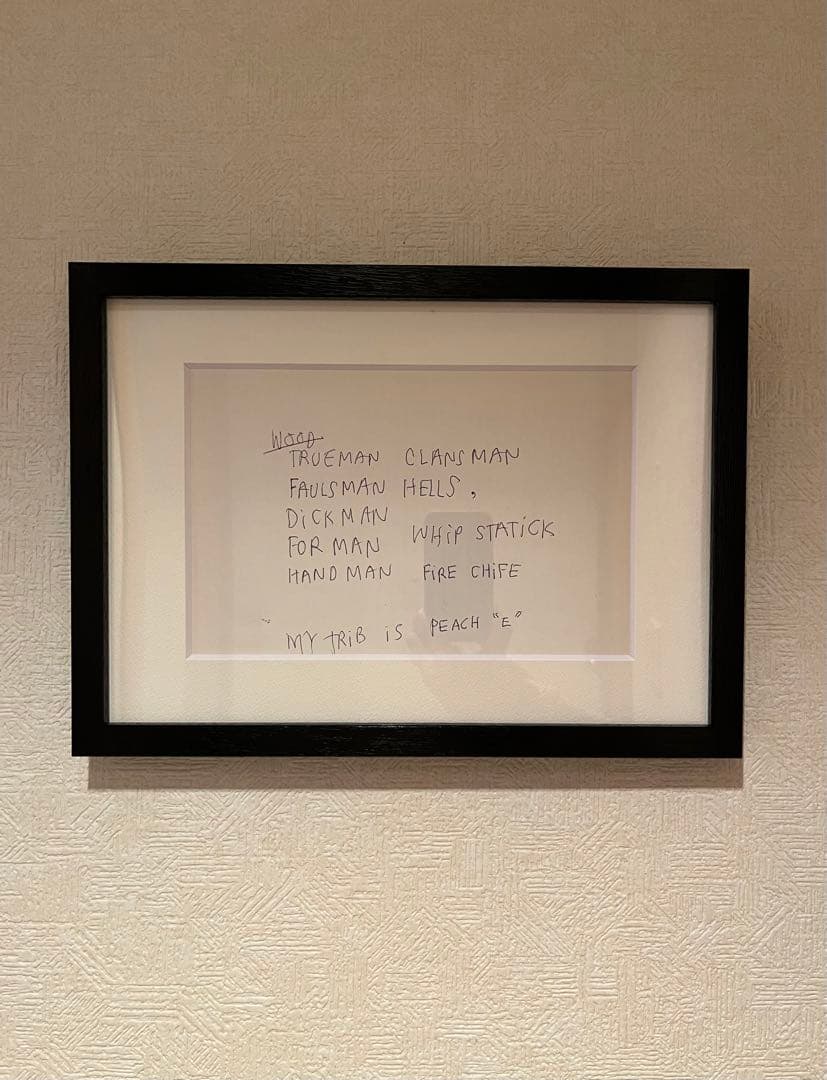 WOOD
TRUEMAN CLANSMAN
FAULSMAN HELLS,
DICKMAN
FOR MAN WHIP STATICK
HANDMAN FIRE CHIFE
MY TRIB IS PEACH "E"